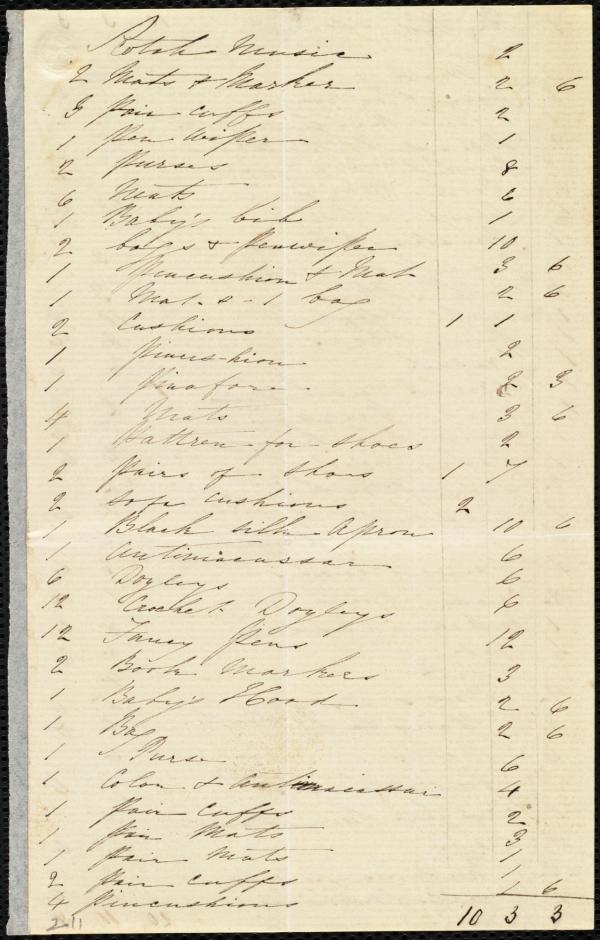 Music 2
2 Mats & Marker 2 6
3 pair cuffs 2
1 pen wiper 1
2 purses 8
6 Mats 6
1 Baby's bib 1
2 bags & penwiper 10
1 pincushion & Mat 3 6
1 Mat & 1 bag 2 6
2 cushions 1 1
1 pincushion 2
1 pinafore 2 3
4 Mats 3 6
1 Pattren for shoes 2
2 pairs of shoes 1 7
2 sofa cushions 2
1 Black silk Apron 10 6
1 Antimacassar 6
6 Doyleys 6
12 Crochet Doyleys 6
12 Fancy pens 12
2 Book Markers 3
1 Baby's Hood 2 6
1 Bag 2 6
1 Purse 6
1 & antimacassar 4
1 pair cuffs 2
1 pair Mats 3
1 pair mats 1
2 pair cuffs 1
4 pincushions 1 6
10 3 3